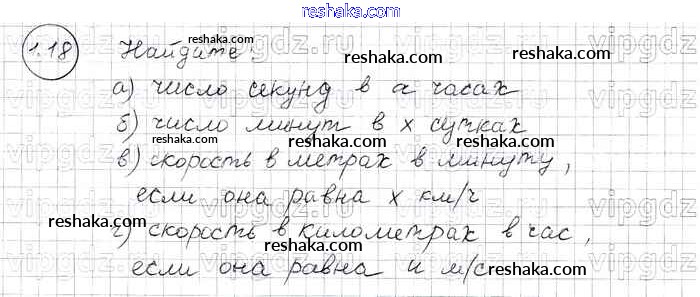 reshaka.com
1.18 Найдите: reshaka.com
а) число секунд в α часах
reshaka.com reshaka.com
б) число минут в х сутках
reshaka.com reshaka.com
в) скорость в метрах в минуту,
если она равна х км/ч
reshaka.com reshaka.com
г) скорость в километрах в час,
reshaka.com reshaka.com
если она равна и м/с
reshaka.com